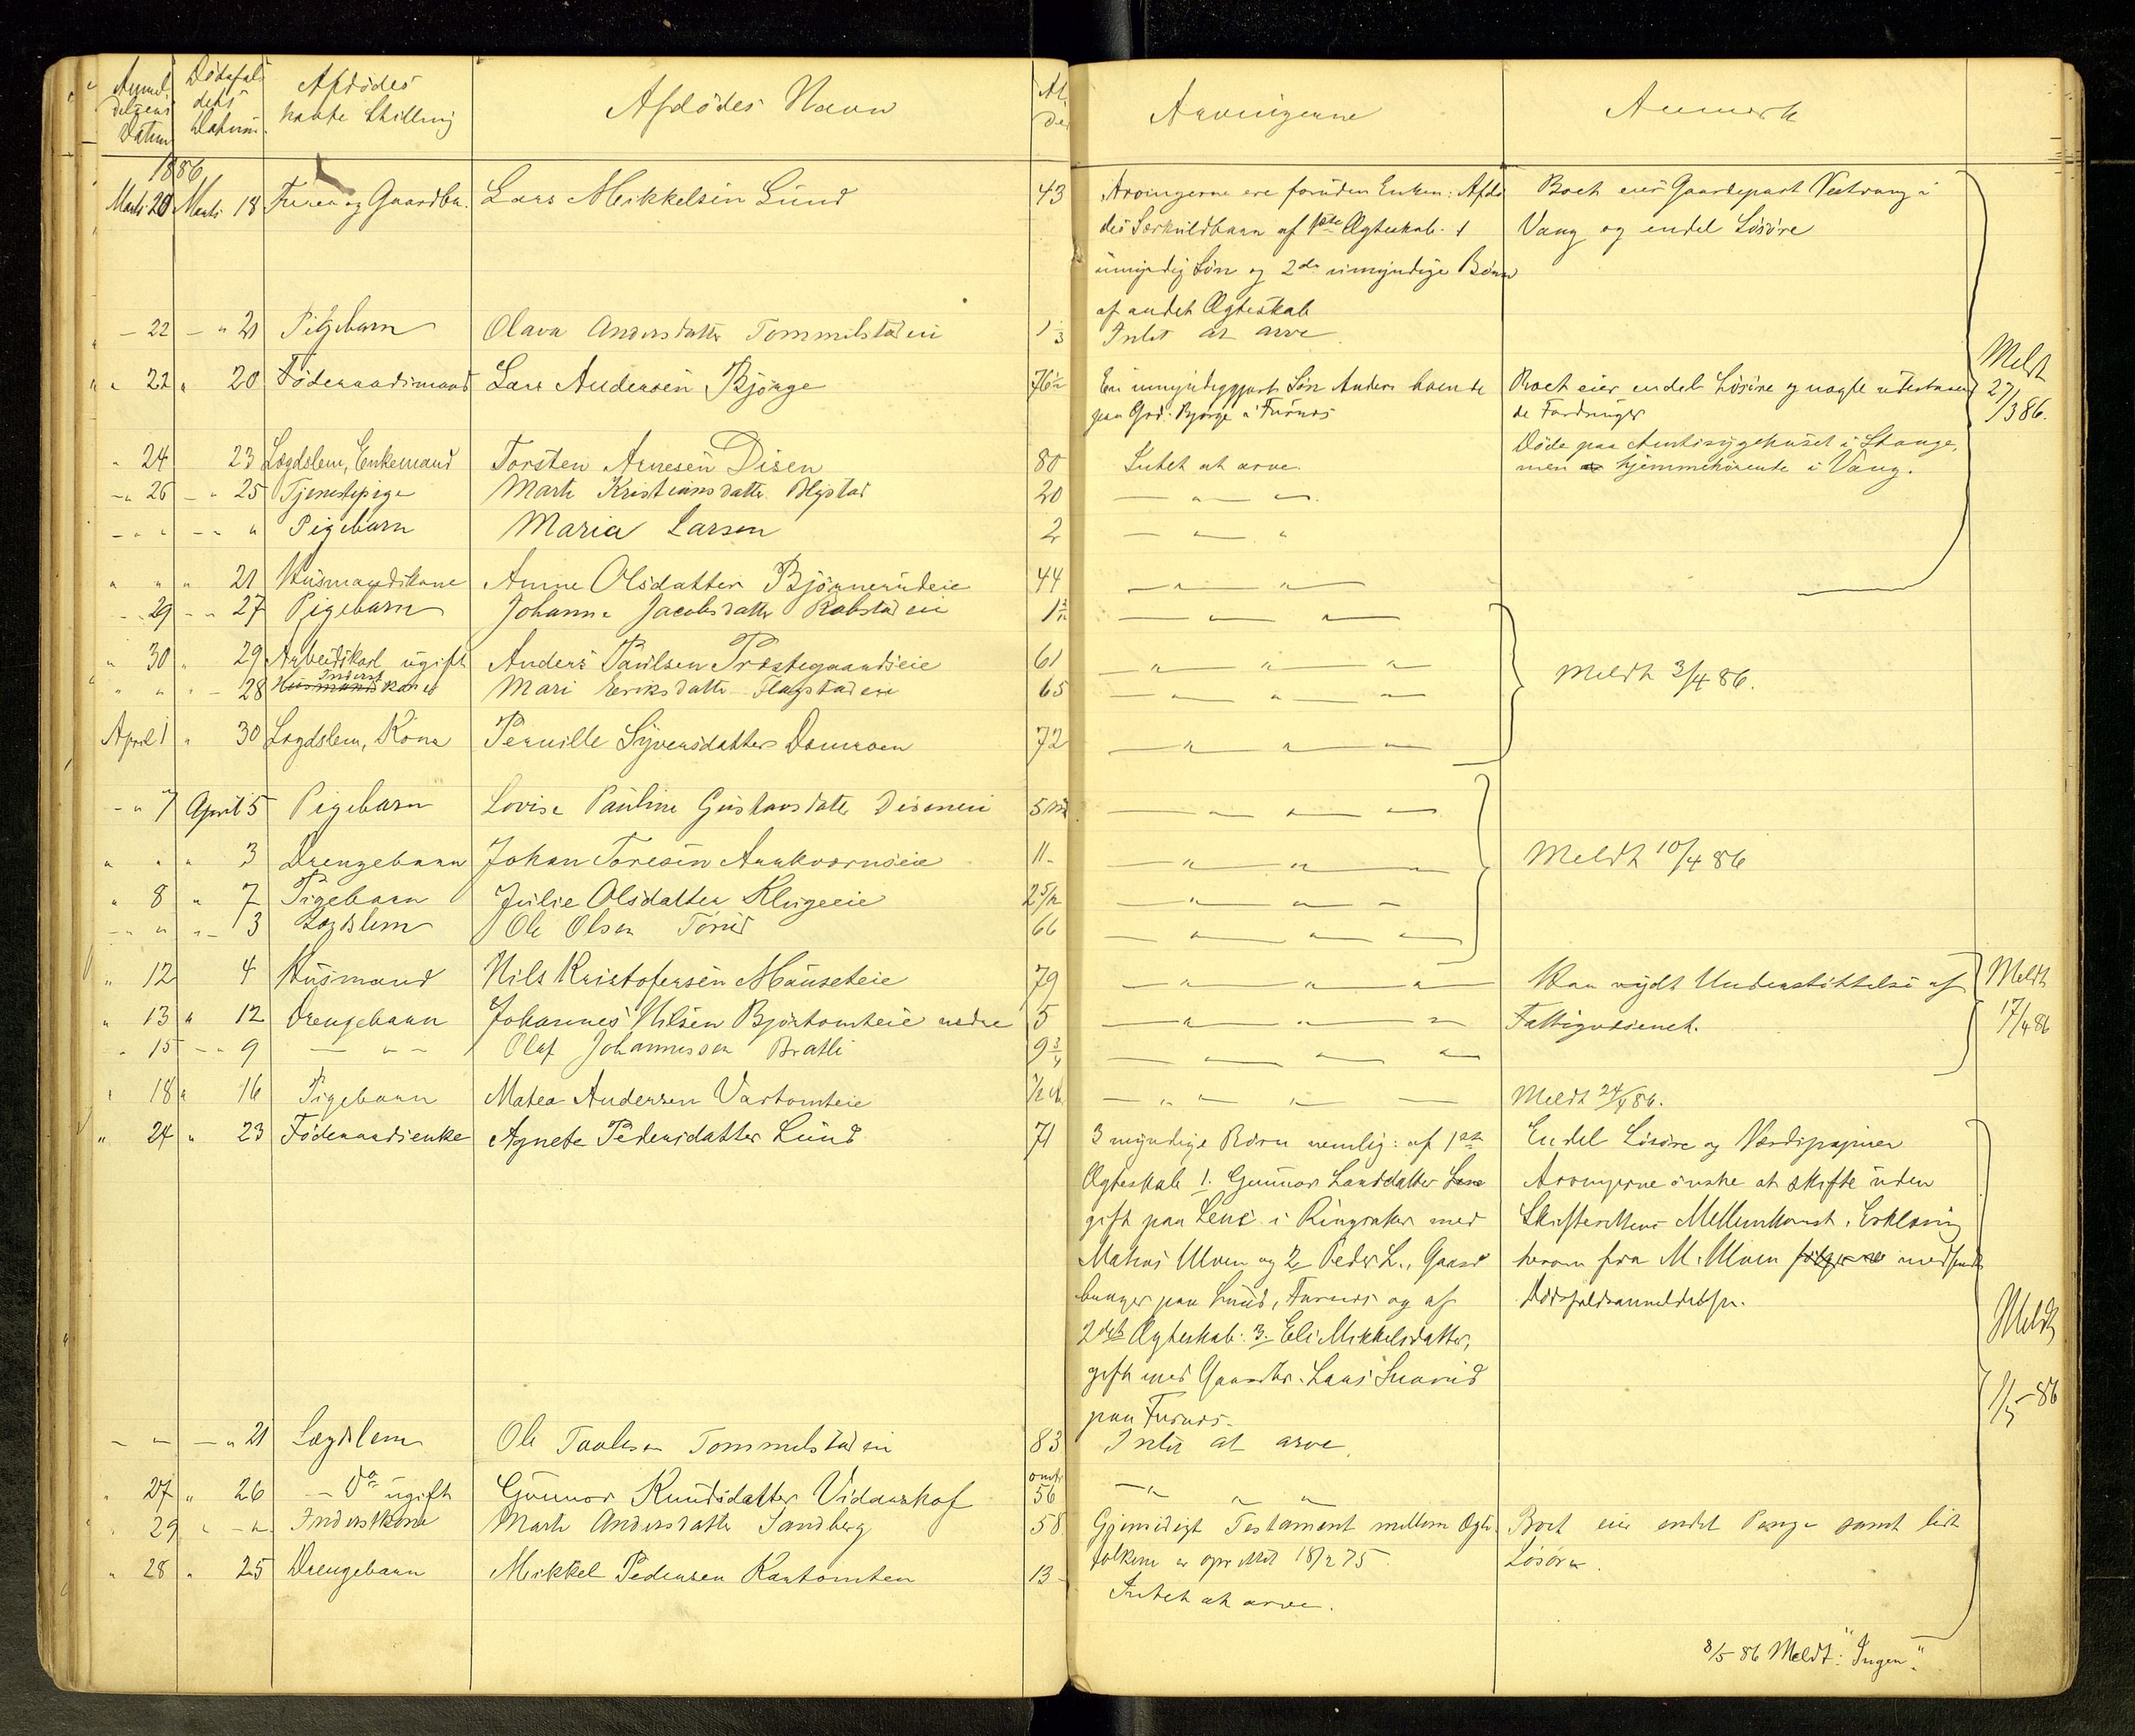 Anmel Dödsfal Afdödes Afdödes Navn Al Arvingerne Anmerk
delsens dets havte Stilling der
Datum Datum
1886
Marts 20 Marts 18 Gaardbr. Lars Mikkelsen Lund 43 Arvingerne ere foruden Enken: Afdö Boet eier Gaardepart Vestvang i
des Særkuldbarn af 1ste Ægteskab. 1 Vang og endel Lösöre
umyndig Sön og 2de umyndige Börn
af andet Ægteskab
— 22 — " 21 Pigebarn Olava Andersdatter Tommelstadeie Intet at arve
" " 22 " 20 Föderaadsmand Lars Andersen Bjørge 76 En umyndiggjort Sön Anders boende Boet eier endel Lösöre og nogle udestaaen
paa Grd. Bjørge i Furnes de Fordringer
Meldt 27/3 86.
" 24 23 Lægdslem, Enkemand Torsten Arnesen Disen 80 Intet at arve. Döde paa Amtssygehuset i Stange,
men hjemmehörende i Vang.
— " 26 — " 25 Tjenestepige Marte Kristiansdatter 20 — " — " —
— " " — " " Pigebarn Maria Larsen 2 — " — "
" " " 21 Husmandskone Anne Olsdatter Bjørnerudeie 44 — " — " —
— 29 — " 27 Pigebarn Johanne Jacobsdatter Rabstadeie 1 — " — " —
" 30 " 29 Arbeidskarl ugift Anders Paulsen Præstegaardseie 61 — " — " — "
" " " — 28 Inderst kone Mari Eriksdatter Flagstadeie 65 — " — " — Meldt 3/4 86.
April 1 " 30 Lægdslem, Kone Pernille Syversdatter Damroen 72 — " — " —
— " 7 April 5 Pigebarn Lovise Pauline Gustavsdatter Diseneie 5 — " — " —
" " " 3 Drengebarn Johan Toresen Aakvarnseie 11 — " — " — Meldt 10/4 86
" 8 " 7 Pigebarn Julie Olsdatter Klugeeie 2 5/12 — " — " —
— " " " — 3 Lægdslem Ole Olsen Torud 66 — " — " —
" 12 4 Husmand Nils Kristofersen Mauseteie 79 — " — " — " Har nydt Understöttelse af Meldt
" 13 " 12 Drengebarn Johannes Nilsen Bjørtomteie nedre 5 — " — " — " Fattigvæsenet. 17/4 86
" 15 — " 9 — " — Olaf Johannessen Bratli 9 3/4 — " — " — "
" 18 " 16 Pigebarn Matea Andersen Vartomteie — " — " — Meldt 24/4 86.
" 24 " 23 Föderaadsenke Agnete Pedersdatter Lund 71 3 myndige Börn nemlig: af 1ste Endel Lösöre og Værdipapirer
Ægteskab 1. Gunnor Larsdatter Arvingerne önske at skifte uden
gift paa Lene i Ringsaker med Skifterettens Mellemkomst. Erklæring
Mathias Ulven og 2 Peder L., Gaard herom fra M. Ulven medsendt
bruger paa Lund, Furnes og af Dödsfaldsanmeldelsen.
2det Ægteskab: 3. Eli Mikkelsdatter, Meldt
gift med Gaardbr. Lars 1/5 – 86
paa Furnes.
— " — " 21 Lægdslem Ole Tommelstadeie 83 Intet at arve.
" 27 " 26 — Do ugift Gunnor Knudsdatter Vidarshof omtr. 56 — " " "
" 29 " — " Inderstkone Marte Andersdatter Sandberg 58 Gjensidigt Testament mellem Ægte Boet eier endel Penge samt lidt
folkene er oprettet 18/2 75. Lösöre.
" 28 " 25 Drengebarn Mikkel Pedersen Kartomten 13 Intet at arve.
8/5 – 86 Meldt: "Ingen".